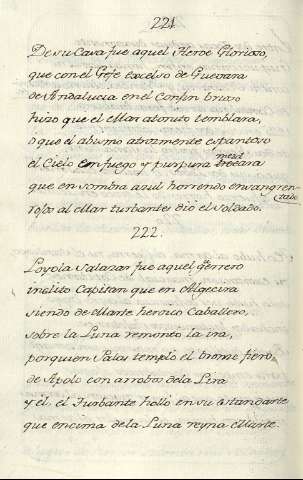 221.
De su Casa fue aquel Heroe Glorioso,
que con el Gefe excelso de Guevara
de Andalucia en el Confin brioso
hizo que el Mar atonito temblara,
ò que el abismo atrozmente espantoso
el Cielo en fuego y purpura mezclara
que en sombra azul horrendo ensangrentado
rojos al Mar turbantes dio el Soldado.
222.
Loyola Salazar fue aquel Guerrero
inclito Capitan que en Algecira
siendo de Marte heroico Caballero,
sobre la Luna remonto la ira,
por quien Palas templo el bronce fiero,
de Apolo con arrobos de la Lira
y el, el Turbante hollò en su estandarte
que encima de la Luna reyna Marte.